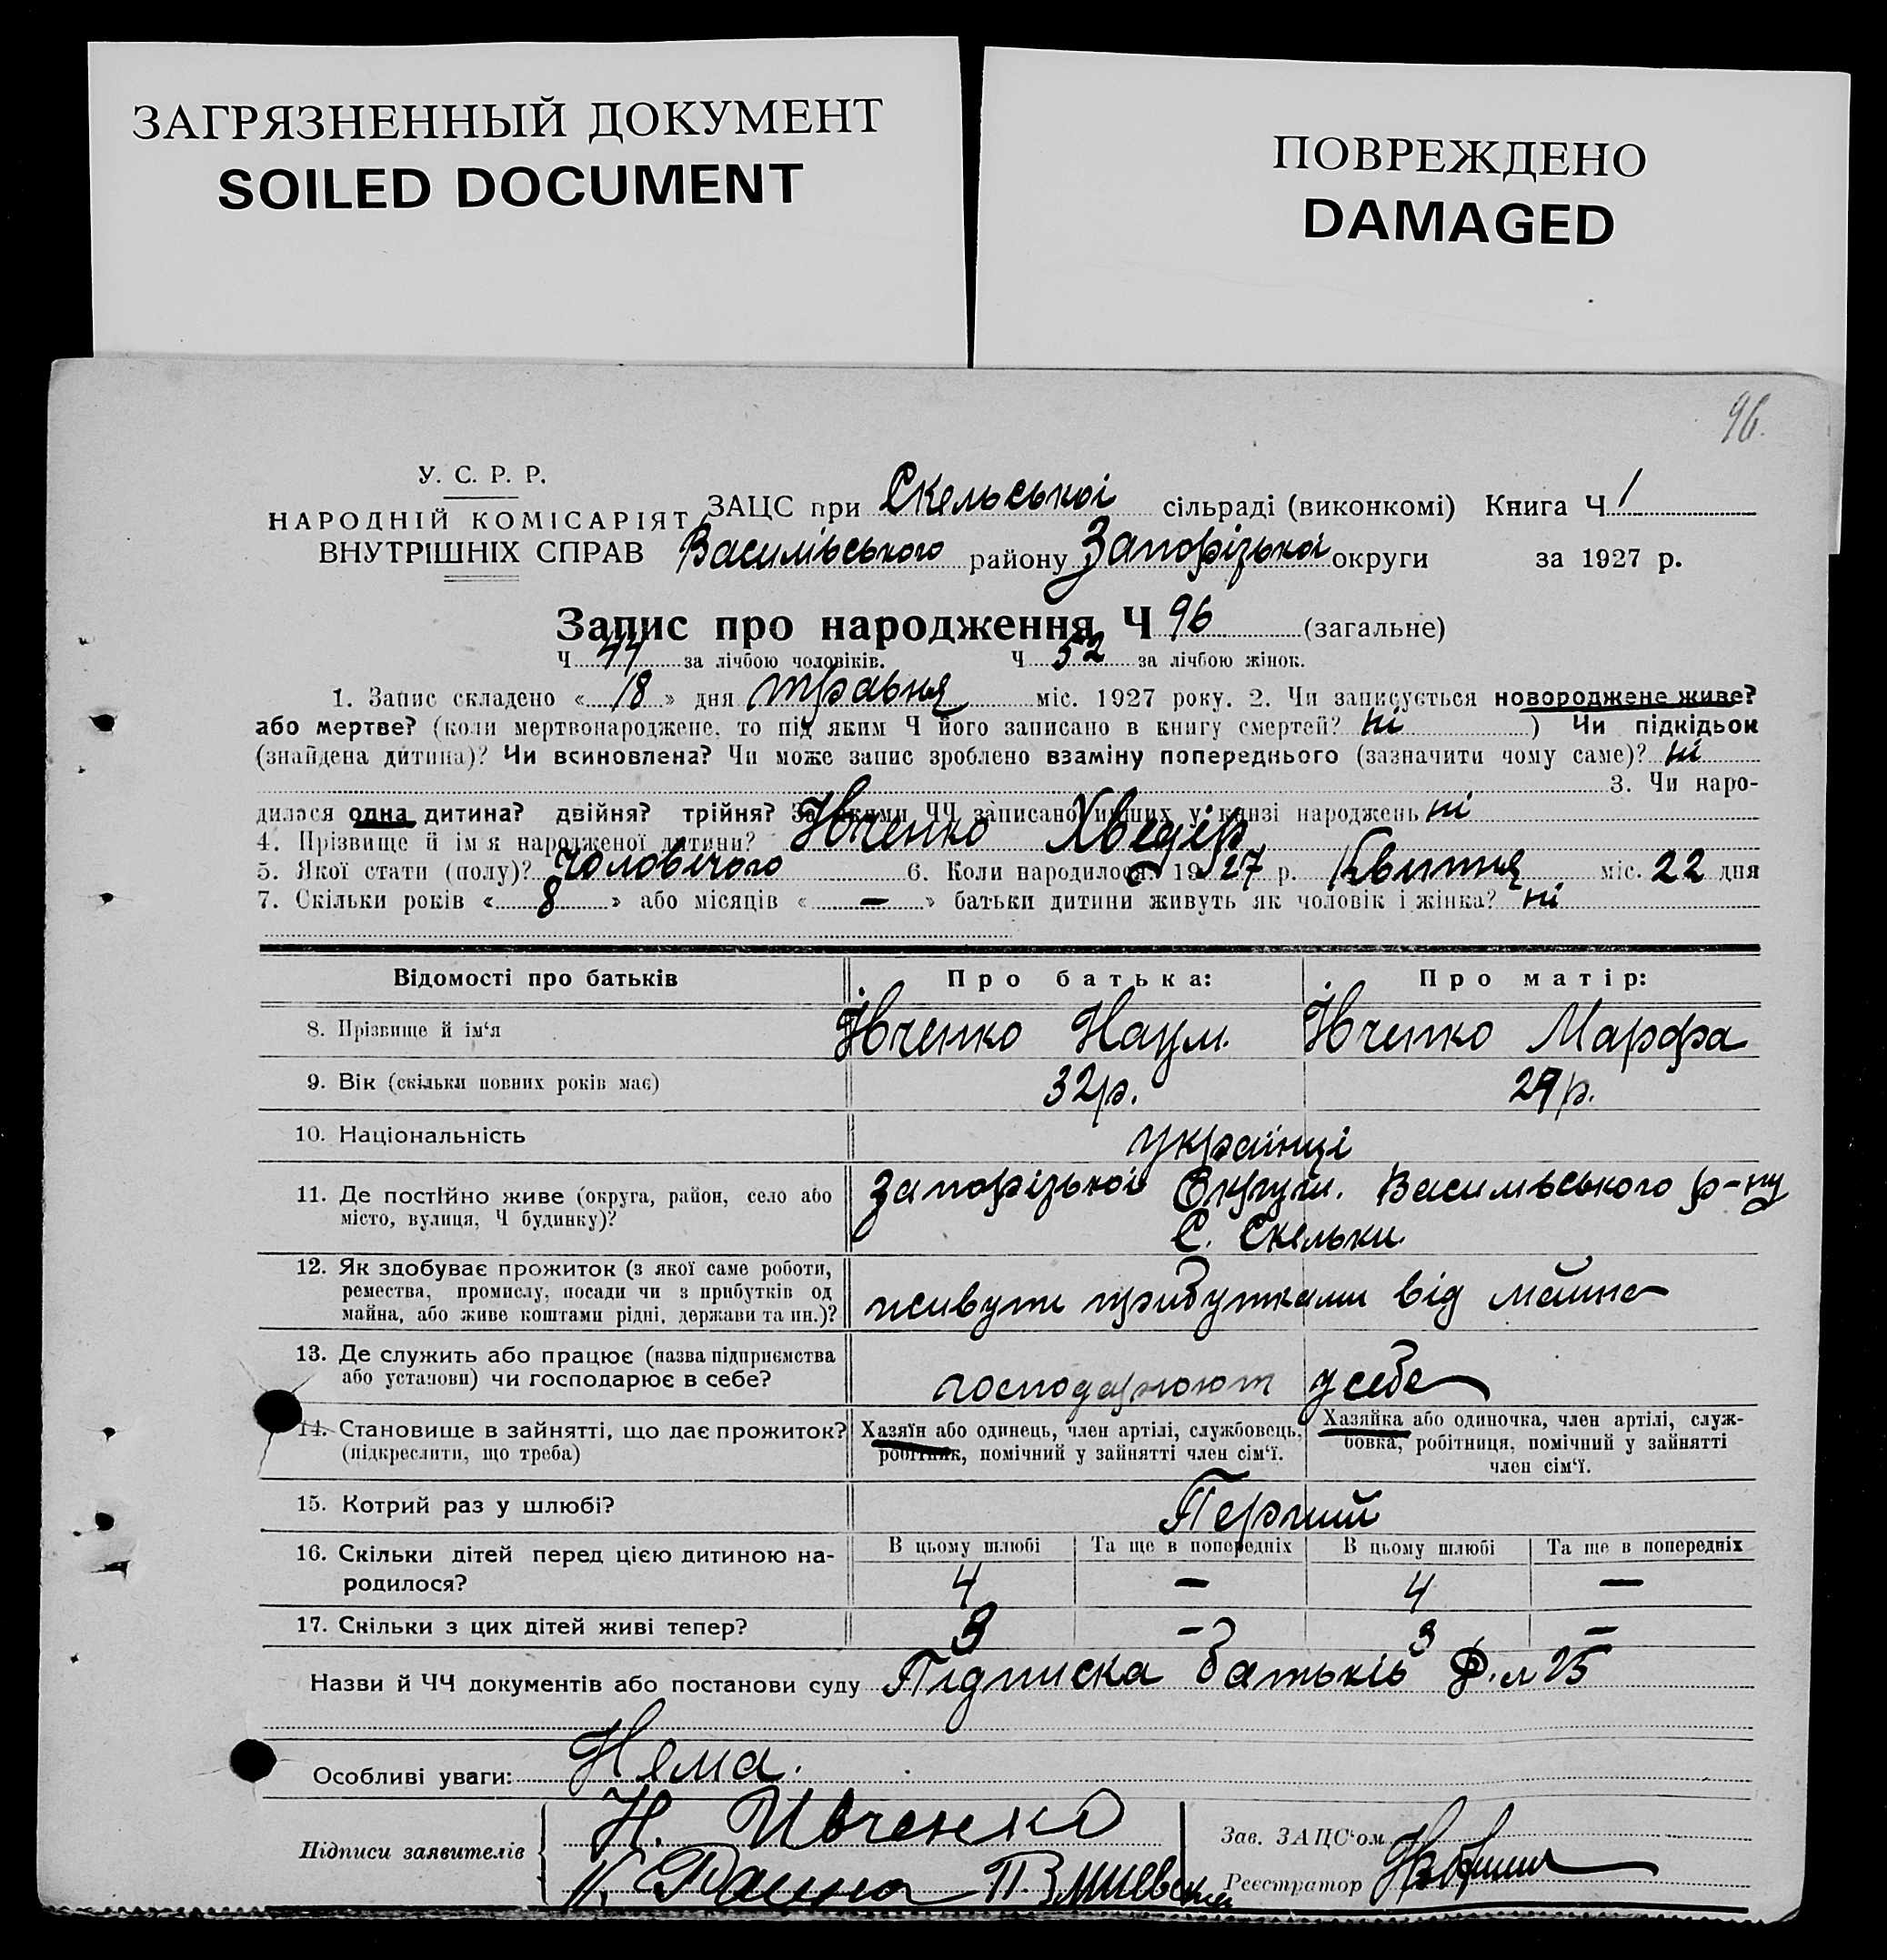 ЗАГРЯЗНЕННЫЙ ДОКУМЕНТ
SOILED DOCUMENT
ПОВРЕЖДЕНО
DAMAGED
96.
У. С. Р. Р.
НАРОДНІЙ КОМІСАРІЯТ
ВНУТРІШНІХ СПРАВ
ЗАЦС при Скельської сільраді (виконкомі) Книга Ч 1
Василівського району Запорізької округи за 1927 р.
Запис про народження Ч 96 (загальне)
Ч 44 за лічбою чоловіків. Ч 52 за лічбою жінок.
1. Запис складено « 18 » дня травня міс. 1927 року. 2. Чи записується новороджене живе?
або мертве? (коли мертвонароджене, то під яким Ч його записано в книгу смертей? ні ) Чи підкідьок
(знайдена дитина)? Чи всиновлена? Чи може запис зроблено взаміну попереднього (зазначити чому саме)? ні
3. Чи наро-
дилася одна дитина? двійня? трійня? За якими ЧЧ записано инших у книзі народжень ні
4. Прізвище й ім'я народженої дитини? Івченко Хведір
5. Якої стати (полу)? Чоловічого 6. Коли народилося? 1927 р. Квитня міс. 22 дня
7. Скільки років « 8 » або місяців « — » батьки дитини живуть як чоловік і жінка? ні
Відомості про батьків Про батька: Про матір:
8. Прізвище й ім'я Івченко Наум. Івченко Марфа
9. Вік (скільки повних років має) 32 р. 29 р.
10. Національність українці
11. Де постійно живе (округа, район, село або
місто, вулиця, Ч будинку)?
Запорізької Округи. Василівського р-ну
С. Скельки
12. Як здобуває прожиток (з якої саме роботи,
ремества, промислу, посади чи з прибутків од
майна, або живе коштами рідні, держави та ин.)?
живуть прибутками від майна
13. Де служить або працює (назва підприємства
або установи) чи господарює в себе?
господарюют у себе
14. Становище в зайнятті, що дає прожиток?
(підкреслити, що треба)
Хазяїн або одинець, член артілі, службовець,
робітник, помічний у зайнятті член сім'ї.
Хазяйка або одиночка, член артілі, служ-
бовка, робітниця, помічний у зайнятті
член сім'ї.
15. Котрий раз у шлюбі? Перший
16. Скільки дітей перед цією дитиною на-
родилося?
В цьому шлюбі Та ще в попередніх В цьому шлюбі Та ще в попередніх
4 — 4 —
17. Скільки з цих дітей живі тепер? 3 — 3 —
Назви й ЧЧ документів або постанови суду Підписка батьків
Особливі уваги: Нема.
Підписи заявителів
Н. Ивченко
Зав. ЗАЦС'ом
Реєстратор